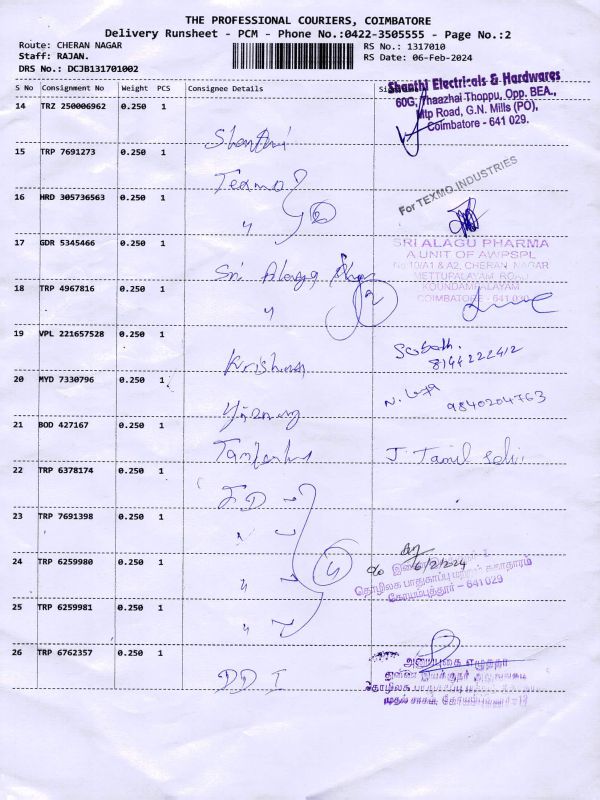 THE PROFESSIONAL COURIERS, COIMBATORE
Delivery Runsheet - PCM - Phone No.:0422-3505555 - Page No.:2
Route: CHERAN NAGAR
RS No.: 1317010
Staff: RAJAN.
RS Date: 06-Feb-2024
DRS No.: DCJB131701002
S No Consignment No Weight PCS Consignee Details
14 TRZ 250006962 0.250 1 Shanthi
Shanthi Electricals & Hardwares
60G, Thaazhai Thoppu, Opp. BEA.,
Mtp Road, G.N. Mills (PO),
Coimbatore - 641 029.
15 TRP 7691273 0.250 1 Texmo
For TEXMO INDUSTRIES
16 HRD 305736563 0.250 1 "
17 GDR 5345466 0.250 1 Sri Alagu
SRI ALAGU PHARMA
A UNIT OF AWPSPL
No.10/A1 & A2, CHERAN NAGAR
METTUPALAYAM ROAD
KOUNDAMPALAYAM
COIMBATORE - 641 030
18 TRP 4967816 0.250 1 "
19 VPL 221657528 0.250 1 Krishna
8144222412
20 MYD 7330796 0.250 1
9840204763
21 BOD 427167 0.250 1
J. Tamil Selvi
22 TRP 6378174 0.250 1
23 TRP 7691398 0.250 1 "
24 TRP 6259980 0.250 1 " 4
6/2/2024
தொழிலக பாதுகாப்பு மற்றும் சுகாதாரம்
கோயம்புத்தூர் – 641 029
25 TRP 6259981 0.250 1 "
26 TRP 6762357 0.250 1 DD I